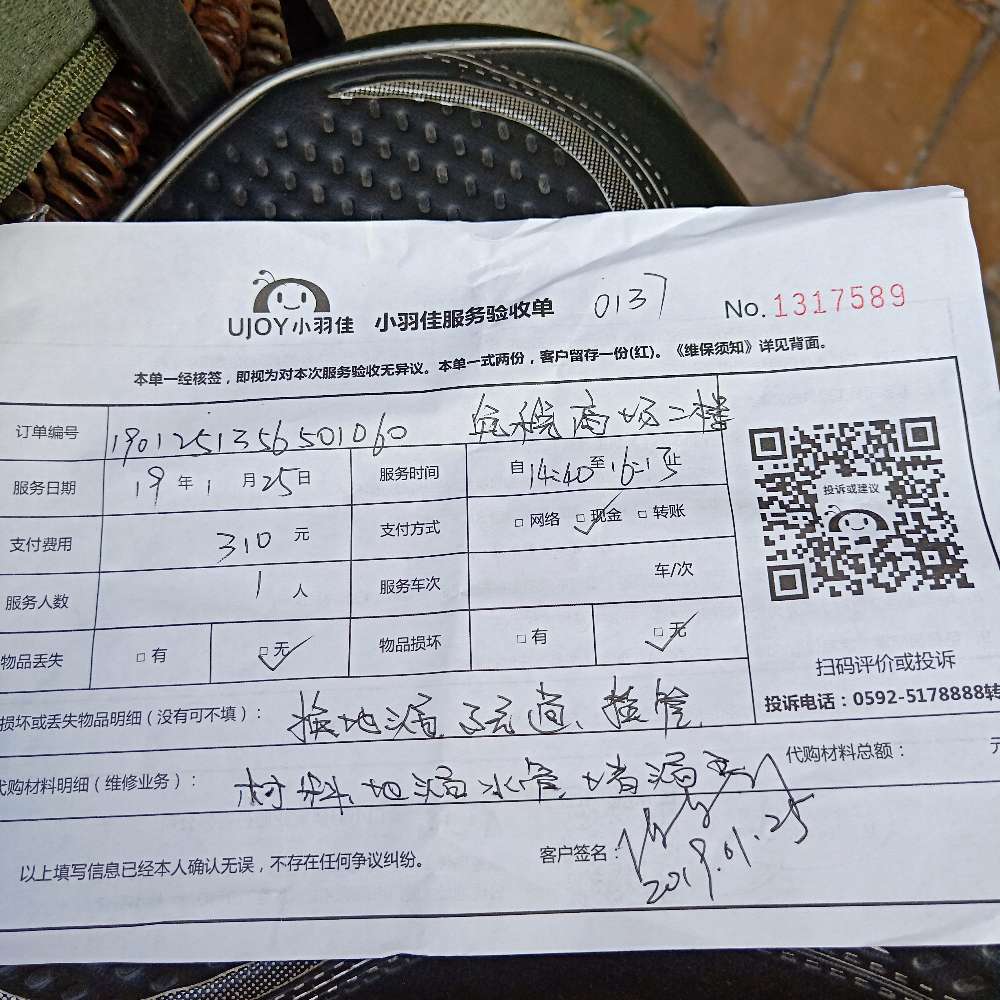 UJOY小羽佳 小羽佳服务验收单 0137 No.1317589
本单一经核签，即视为对本次服务验收无异议。本单一式两份，客户留存一份(红)。《维保须知》详见背面。
订单编号 1901251356501060 免税商场二楼
服务日期 19年1月25日 服务时间 自14:40至16:13止
支付费用 310元 支付方式 □网络 □现金 □转账
服务人数 1人 服务车次 车/次
物品丢失 □有 □无 物品损坏 □有 □无
投诉或建议
扫码评价或投诉
投诉电话：0592-5178888转
损坏或丢失物品明细（没有可不填）： 换地漏
代购材料明细（维修业务）： 材料.地漏水管.堵漏 代购材料总额： 元
以上填写信息已经本人确认无误，不存在任何争议纠纷。 客户签名：
2019.01.25